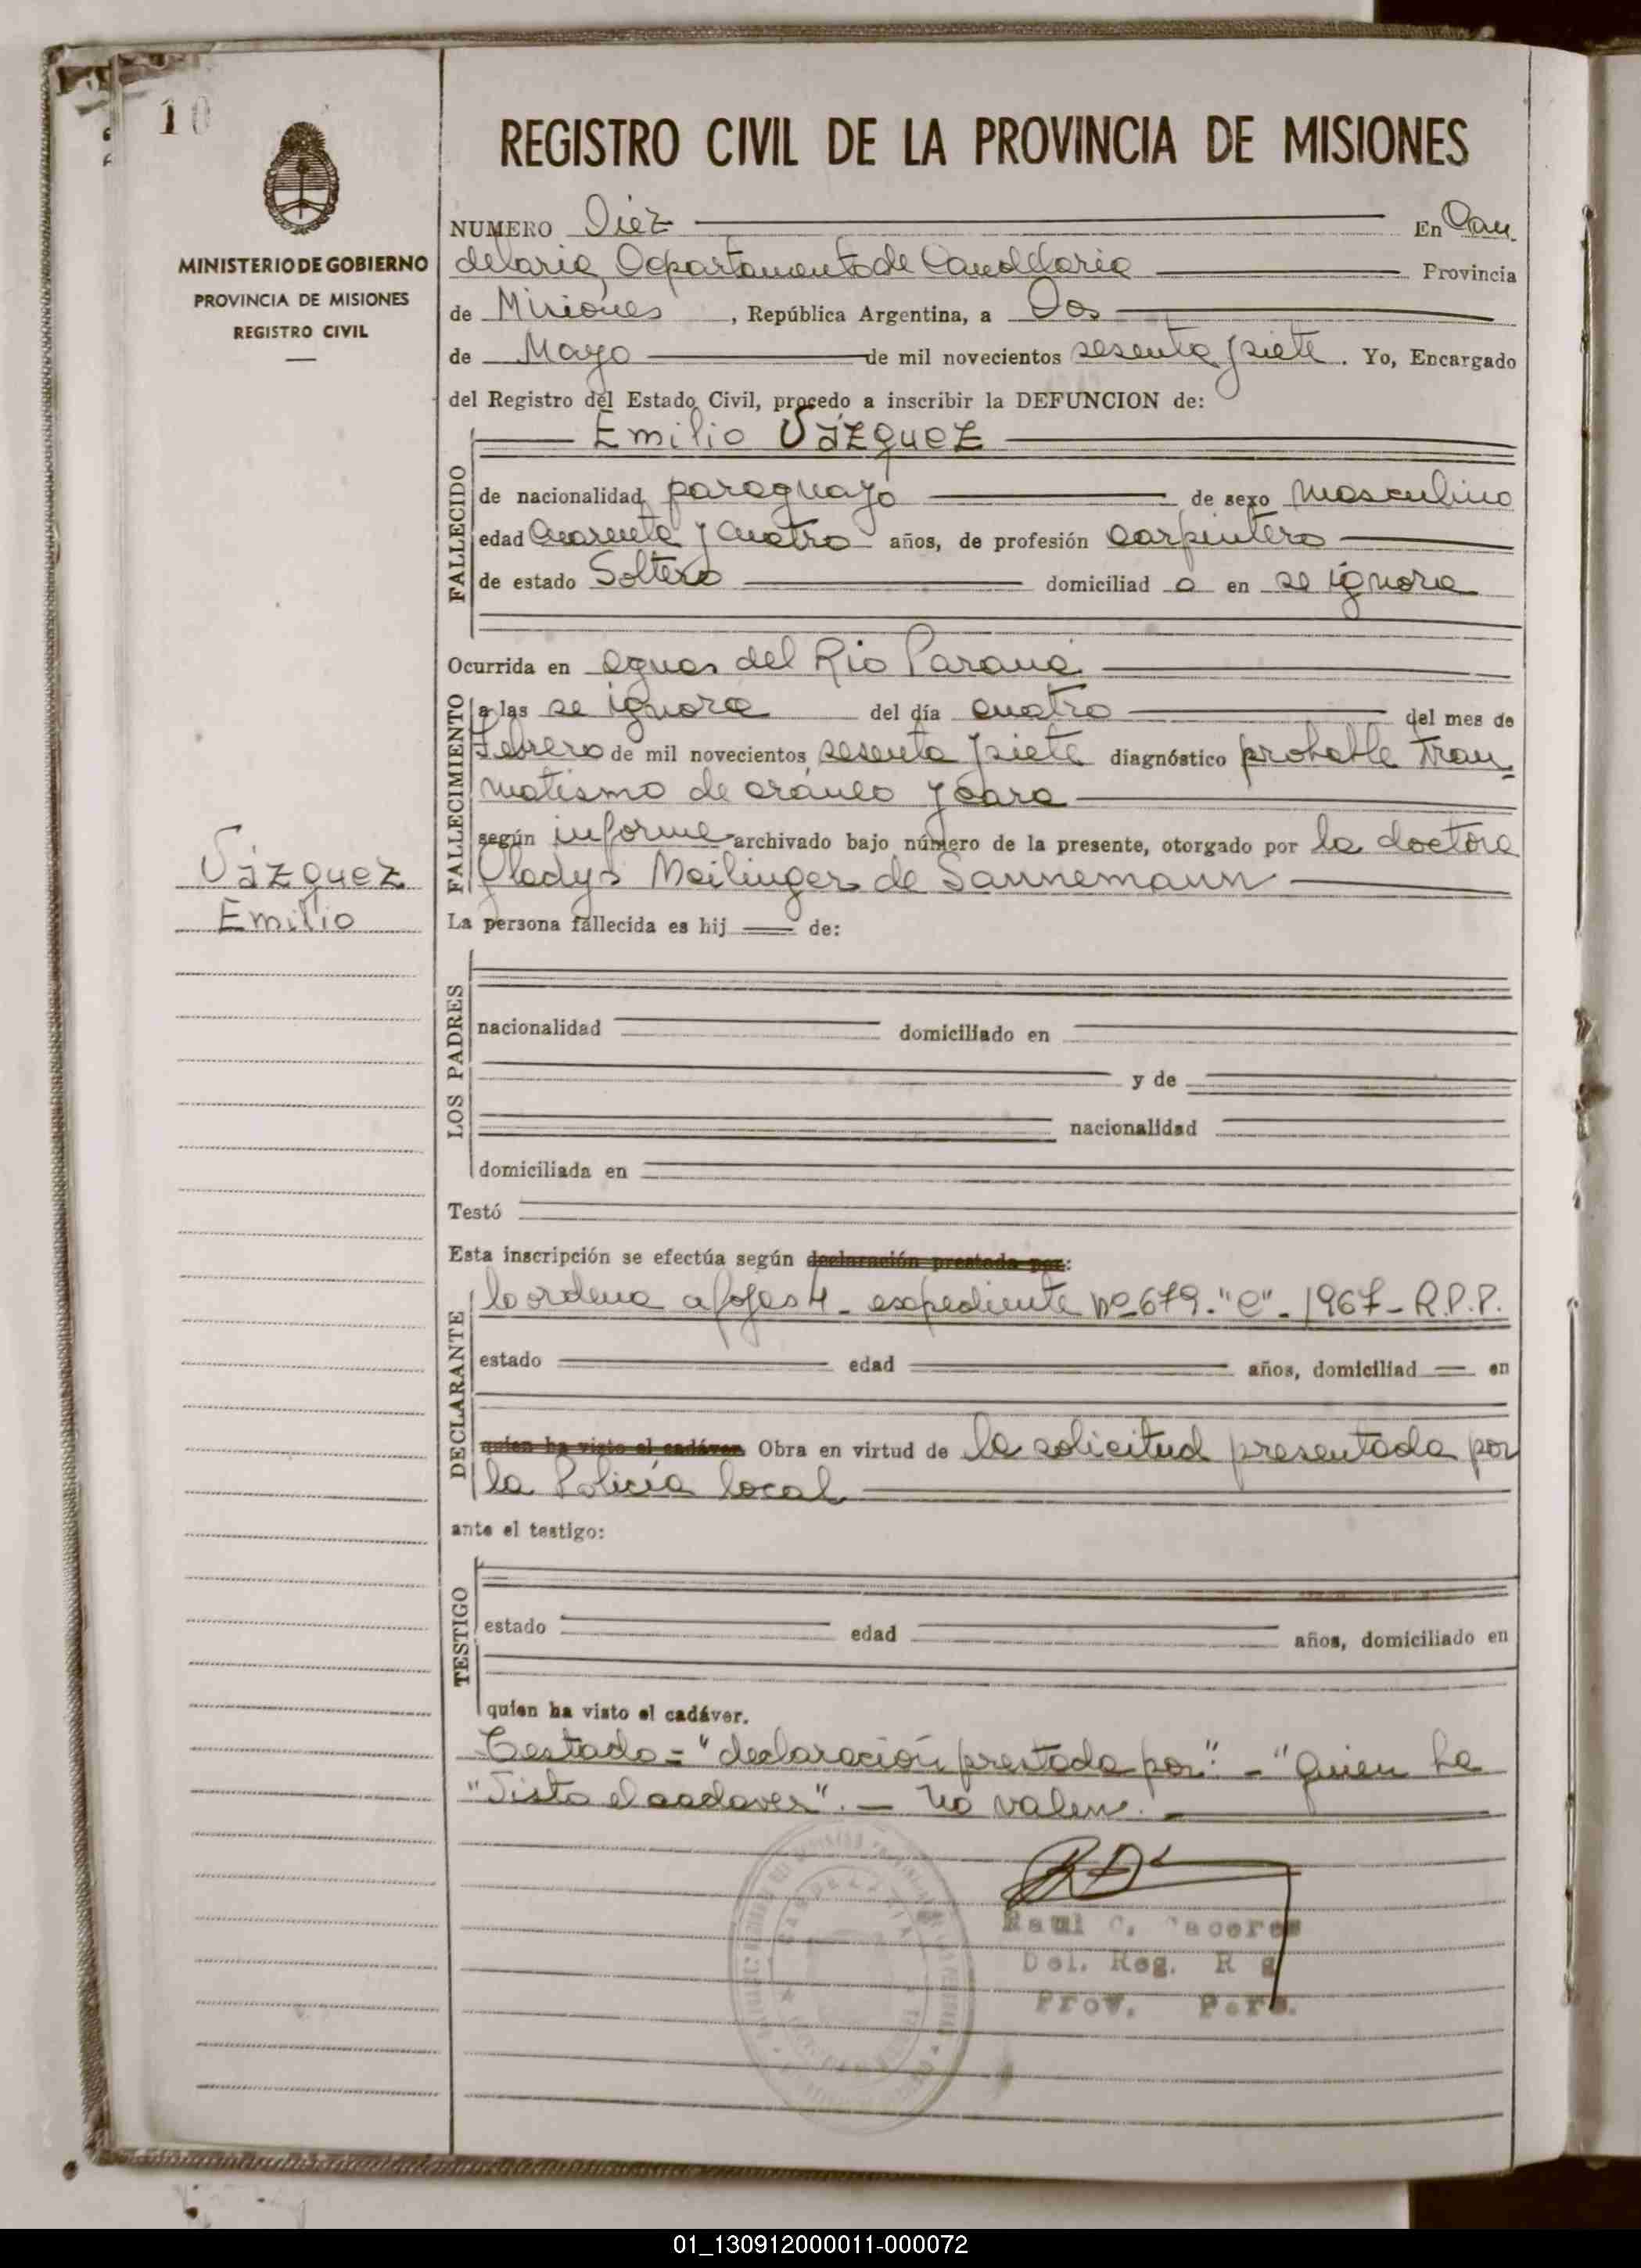 10
MINISTERIO DE GOBIERNO
PROVINCIA DE MISIONES
REGISTRO CIVIL
Vázquez
Emilio
REGISTRO CIVIL DE LA PROVINCIA DE MISIONES
NUMERO Diez En Can
delaria Departamento de Candelaria Provincia
de Misiones, República Argentina, a Dos
de Mayo de mil novecientos sesenta y siete. Yo, Encargado
del Registro del Estado Civil, procedo a inscribir la DEFUNCION de:
Emilio Vázquez
FALLECIDO
de nacionalidad paraguayo de sexo masculino
edad Cuarenta y cuatro años, de profesión carpintero
de estado Soltero domiciliad o en se ignora
Ocurrida en aguas del Rio Paraná
FALLECIMIENTO
a las se ignora del día cuatro del mes de
Febrero de mil novecientos sesenta y siete diagnóstico probable trau
matismo de cráneo y cara
según informe archivado bajo número de la presente, otorgado por la doctora
Gladys Meilinger de Sannemann
La persona fallecida es hij de:
LOS PADRES
nacionalidad domiciliado en
y de
nacionalidad
domiciliada en
Testó
Esta inscripción se efectúa según declaración prestada por:
DECLARANTE
lo ordena a fojas 4 - expediente Nº 679-"C"-1967-R.P.P.
estado edad años, domiciliad en
quien ha visto el cadáver. Obra en virtud de la solicitud presentada por
la Policía local
ante el testigo:
TESTIGO
estado edad años, domiciliado en
quien ha visto el cadáver.
Testado="declaración prestada por". - "quien ha
"visto el cadaver". - No valen. -
Raul C. Caceres
Del. Reg.
Prov. Pers.
01_130912000011-000072